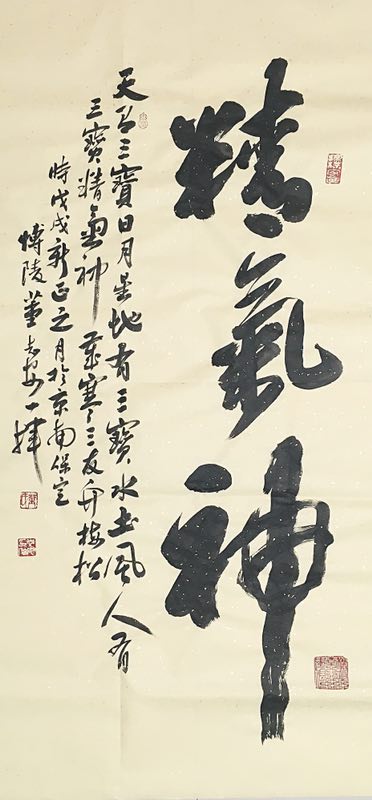 精氣神
天有三寶日月星地有三寶水土風人有
三寶精氣神歲寒三友竹梅松
時戊戌新正之月於京南保定
博陵董 一揮